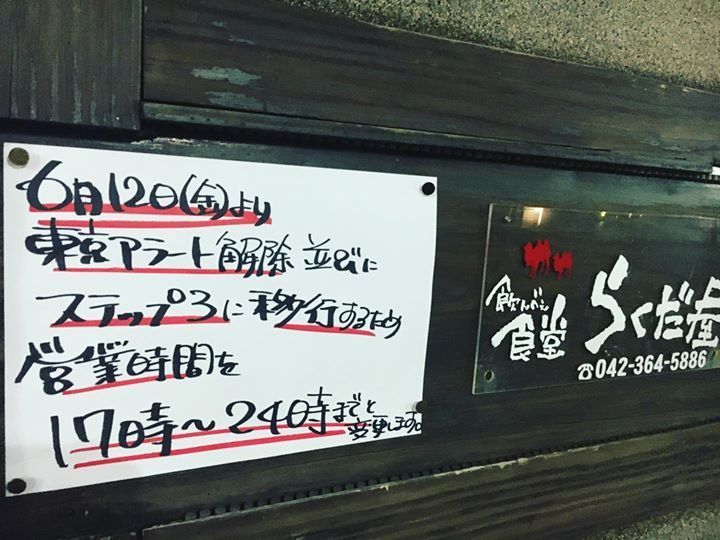 6月12日(金)より
東京アラート解除並びに
ステップ3に移行するため
営業時間を
17時～24時までと
変更します。
飲んべえ
食堂
らくだ屋
☎042-364-5886